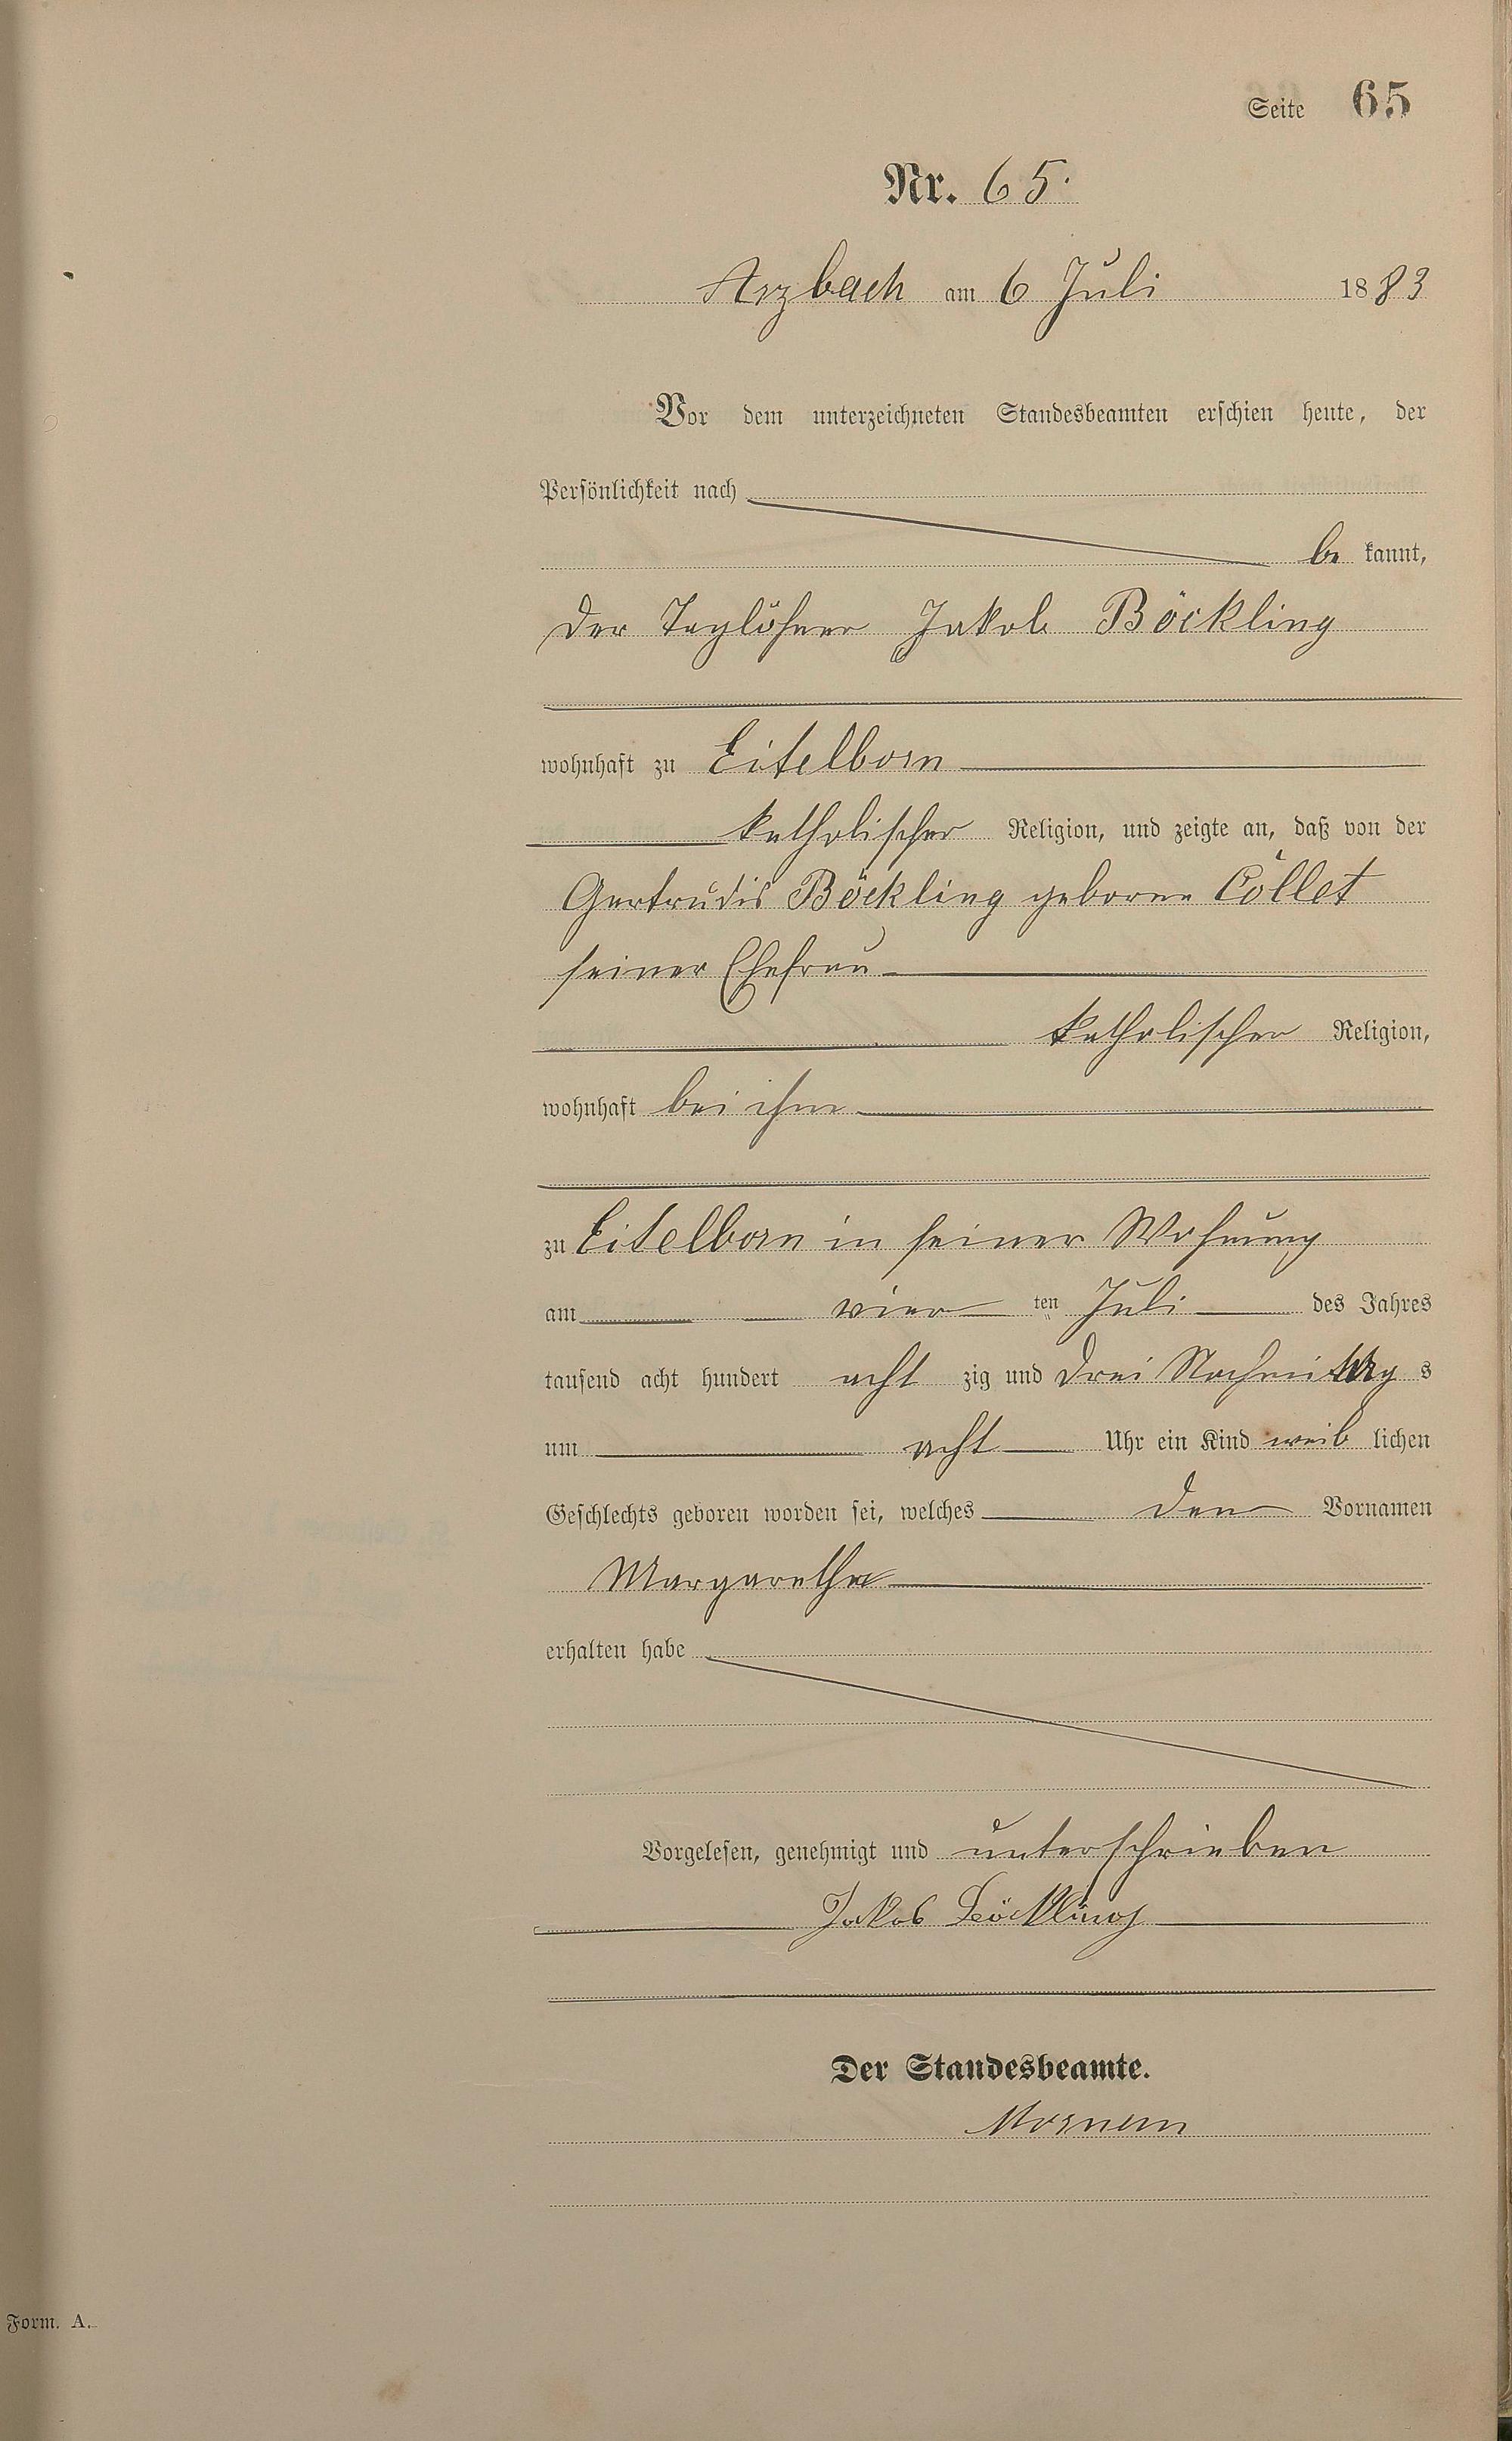 Seite 65
Nr. 65.
Arzbach am 6 Juli 1883
Vor dem unterzeichneten Standesbeamten erschien heute, der
Persönlichkeit nach
be kannt,
der Taglöhner Jakob Böckling
wohnhaft zu Eitelborn
katholischer Religion, und zeigte an, daß von der
Gertrudis Böckling geborne Cöllet
seiner Ehefrau
katholischer Religion,
wohnhaft bei ihm
zu Eitelborn in seiner Wohnung
am vier ten Juli des Jahres
tausend acht hundert acht zig und drei Nachmittag s
um acht Uhr ein Kind weib lichen
Geschlechts geboren worden sei, welches den Vornamen
Margaretha
erhalten habe
Vorgelesen, genehmigt und unterschrieben
Jakob Böckling
Der Standesbeamte.
Form. A.